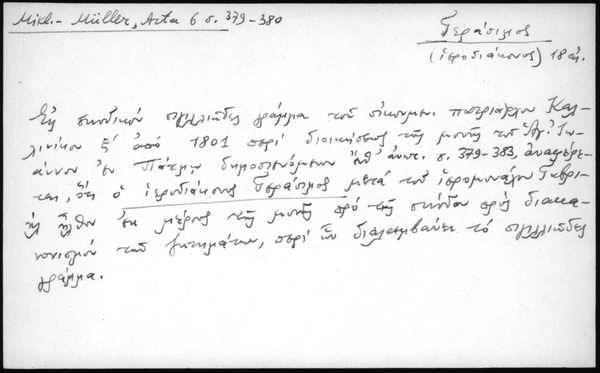 Mikl.- Müller, Acta 6 σ. 379-380
Γεράσιμος
(ἱεροδιάκονος) 18 αἰ.
Εἰς συνοδικόν σιγιλλιῶδες γράμμα τοῦ οἰκουμεν. πατριάρχου Καλ-
λινίκου Ε΄ ἀπό 1801 περί διοικήσεως τῆς μονῆς τοῦ Ἁγ. Ἰω-
άννου ἐν Πάτμῳ δημοσιευόμενον ἔνθ᾽ ἀνωτ. σ. 379-383, ἀναφέρε-
ται, ὅτι ὁ ἱεροδιάκονος Γεράσιμος μετά τοῦ ἱερομονάχου Γαβρι-
ήλ ἦλθον ἐκ μέρους τῆς μονῆς πρό τῆς συνόδου πρός διακα-
νονισμόν τῶν ζητημάτων, περί ὧν διαλαμβάνει τό σιγιλλιῶδες
γράμμα.